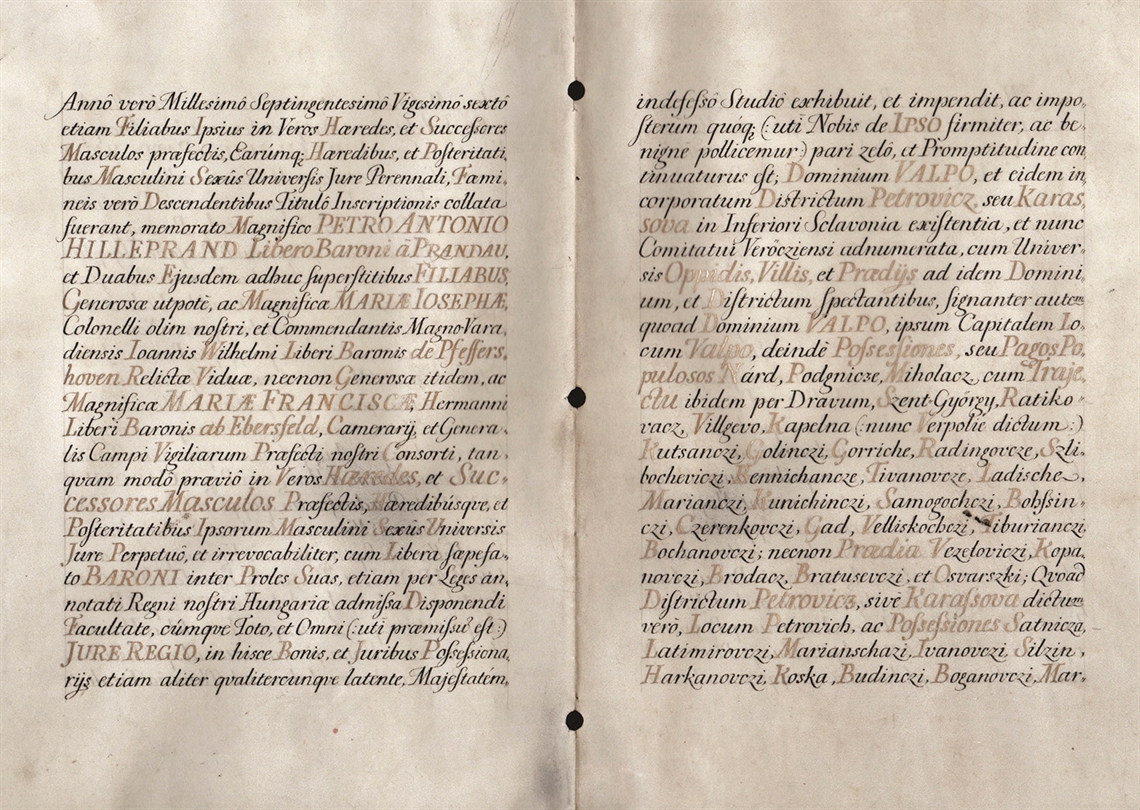 Annô verò Millesimô Septingentesimô Vigesimô sextô
etiam Filiabus Ipsius in Veros Hæredes, et Successores
Masculos præfectis, Earúmq; Hæredibus, et Posteritati,
bus Masculini Sexûs Universis Jure Perennali, Fæmi,
neis verò Descendentibus Titulô Inscriptionis collata
fuerant, memorato Magnifico PETRO ANTONIO
HILLEPRAND Libero Baroni â PRANDAU,
et Duabus Ejusdem adhuc superstitibus FILIABUS,
Generosæ utpotè, ac Magnificæ MARIÆ IOSEPHÆ,
Colonelli olim nostri, et Commendantis Magno-Vara,
diensis Ioannis Wilhelmi Liberi Baronis de Pfeffers,
hoven Relictæ Viduæ, necnon Generosæ itidem, ac
Magnificæ MARIÆ FRANCISCÆ, Hermanni
Liberi Baronis ab Ebersfeld, Camerarij, et Genera,
lis Campi Vigiliarum Præfecti nostri Consorti, tan,
qvam modô præviô in Veros Hæredes, et Suc,
cessores Masculos Præfectis, Hæredibúsqve, et
Posteritatibus Ipsorum Masculini Sexûs Universis
Jure Perpetuô, et irrevocabiliter, cum Libera sæpefa,
to BARONI inter Proles Suas, etiam per Leges an,
notati Regni nostri Hungariæ admissa Disponendi
Facultate, cúmqve Toto, et Omni (: uti præmissũ est :)
JURE REGIO, in hisce Bonis, et Juribus Possessiona,
rijs etiam aliter qvalitercunqve latente, Majestatém,
indefessô Studiô exhibuit, et impendit, ac impo,
sterum quóq; (: uti Nobis de IPSO firmiter, ac be,
nigne pollicemur :) pari zelô, et Promptitudine con,
tinuaturus est; Dominium VALPO, et eidem in,
corporatum Districtum Petrovicz, seu Karas,
sova in Inferiori Sclavonia existentia, et nunc
Comitatui Verőcziensi adnumerata, cum Univer,
sis Oppidis, Villis, et Prædijs ad idem Domini,
um, et Districtum spectantibus, signanter autem
quoad Dominium VALPO, ipsum Capitalem Lo,
cum Valpo, deindè Possessiones, seu Pagos Po,
pulosos Nárd, Podgnicze, Miholacz, cum Traje,
ctu ibidem per Dravum, Szent-György, Ratiko,
vacz, Villgevo, Kapelna (: nunc Verpolie dictum :)
Kutsanczi, Golinczi, Gorriche, Radingovcze, Szli,
bocheviczi, Bennichancze, Tivanovcze, Ladische,
Marianczi, Kunichinczi, Samogochczi, Bohssin,
czi, Czerenkovczi, Gad, Velliskochczi, Tiburianczi,
Bochanovczi; necnon Prædia Vezeloviczi, Kopa,
novczi, Brodacz, Bratusevczi, et Osvarszki; Qvoad
Districtum Petrovicz, sivè Karassova dictum
verò, Locum Petrovich, ac Possessiones Satnicza,
Latimirovczi, Marianschazi, Ivanovczi, Silzin,
Harkanovczi, Koska, Budinczi, Boganovczi, Mar,